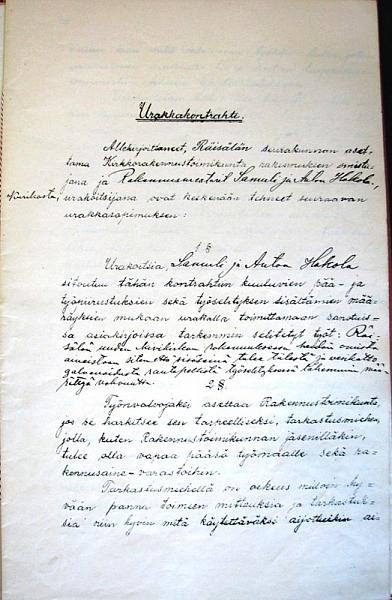 Urakkakontrahti.
Allekirjoittaneet, Räisälän seurakunnan aset-
tama Kirkkorakennustoimikunta rakennuksien omista-
jana ja Rakennusmestarit Samuli ja Anton Hakola,
urakoitsijana ovat keskenään tehneet seuraavan
urakkasopimuksen:
1 §
Urakoitsia, Samuli ja Anton Hakola
sitoutuu tähän kontrahtiin kuuluvien pää- ja
työpiirustuksien sekä työselityksen sisältämien mää-
räyksien mukaan urakalla toimittamaan sanotuis-
sa asiakirjoissa tarkemmin selitetyt työt: Räi-
sälän uuden kivikirkon
tulee tiilestä ja
työselityksessä lähemmin
2 §.
Työnvalvojaksi asettaa Rakennustoimikunta,
jos se harkitsee sen tarpeelliseksi, tarkastusmiehen,
jolla, kuten Rakennustoimikunnan jäsenilläkin,
tulee olla vapaa pääsö työmaalle sekä ra-
kennusaine-varastoihin.
Tarkastusmiehellä on oikeus milloin hy-
vään panna toimeen mittauksia ja tarkastuk-
sia niin hyvin mitä käytettäväksi aijottuihin ai-